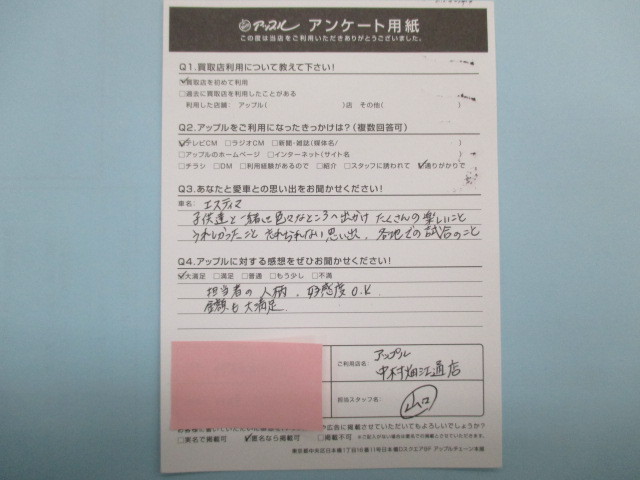 アップル アンケート用紙
この度は当店をご利用いただきありがとうございました。
Q1.買取店利用について教えて下さい!
☑買取店を初めて利用
□過去に買取店を利用したことがある
利用した店舗: アップル( )店 その他( )
Q2.アップルをご利用になったきっかけは?(複数回答可)
☑テレビCM □ラジオCM □新聞・雑誌(媒体名/ )
□アップルのホームページ □インターネット(サイト名 )
□チラシ □DM □利用経験があるので □紹介 □スタッフに誘われて ☑通りがかりで
Q3.あなたと愛車との思い出をお聞かせください!
車名: エスティマ
子供達と一緒に色々なところへ出かけ たくさんの楽しいこと
うれしかったこと わすれられない思い出、各地での試合のこと
Q4.アップルに対する感想をぜひお聞かせください!
☑大満足 □満足 □普通 □もう少し □不満
担当者の人柄、好感度O.K
金額も大満足
ご利用店名: アップル
中村畑江通店
担当スタッフ名: 山口
広告に掲載させていただいてもよろしいでしょうか?
□実名で掲載可 ☑匿名なら掲載可 □掲載不可 ※ご記入がない場合は匿名での掲載とさせていただきます。
東京都中央区日本橋1丁目16番11号日本橋Dスクエア8F アップルチェーン本部